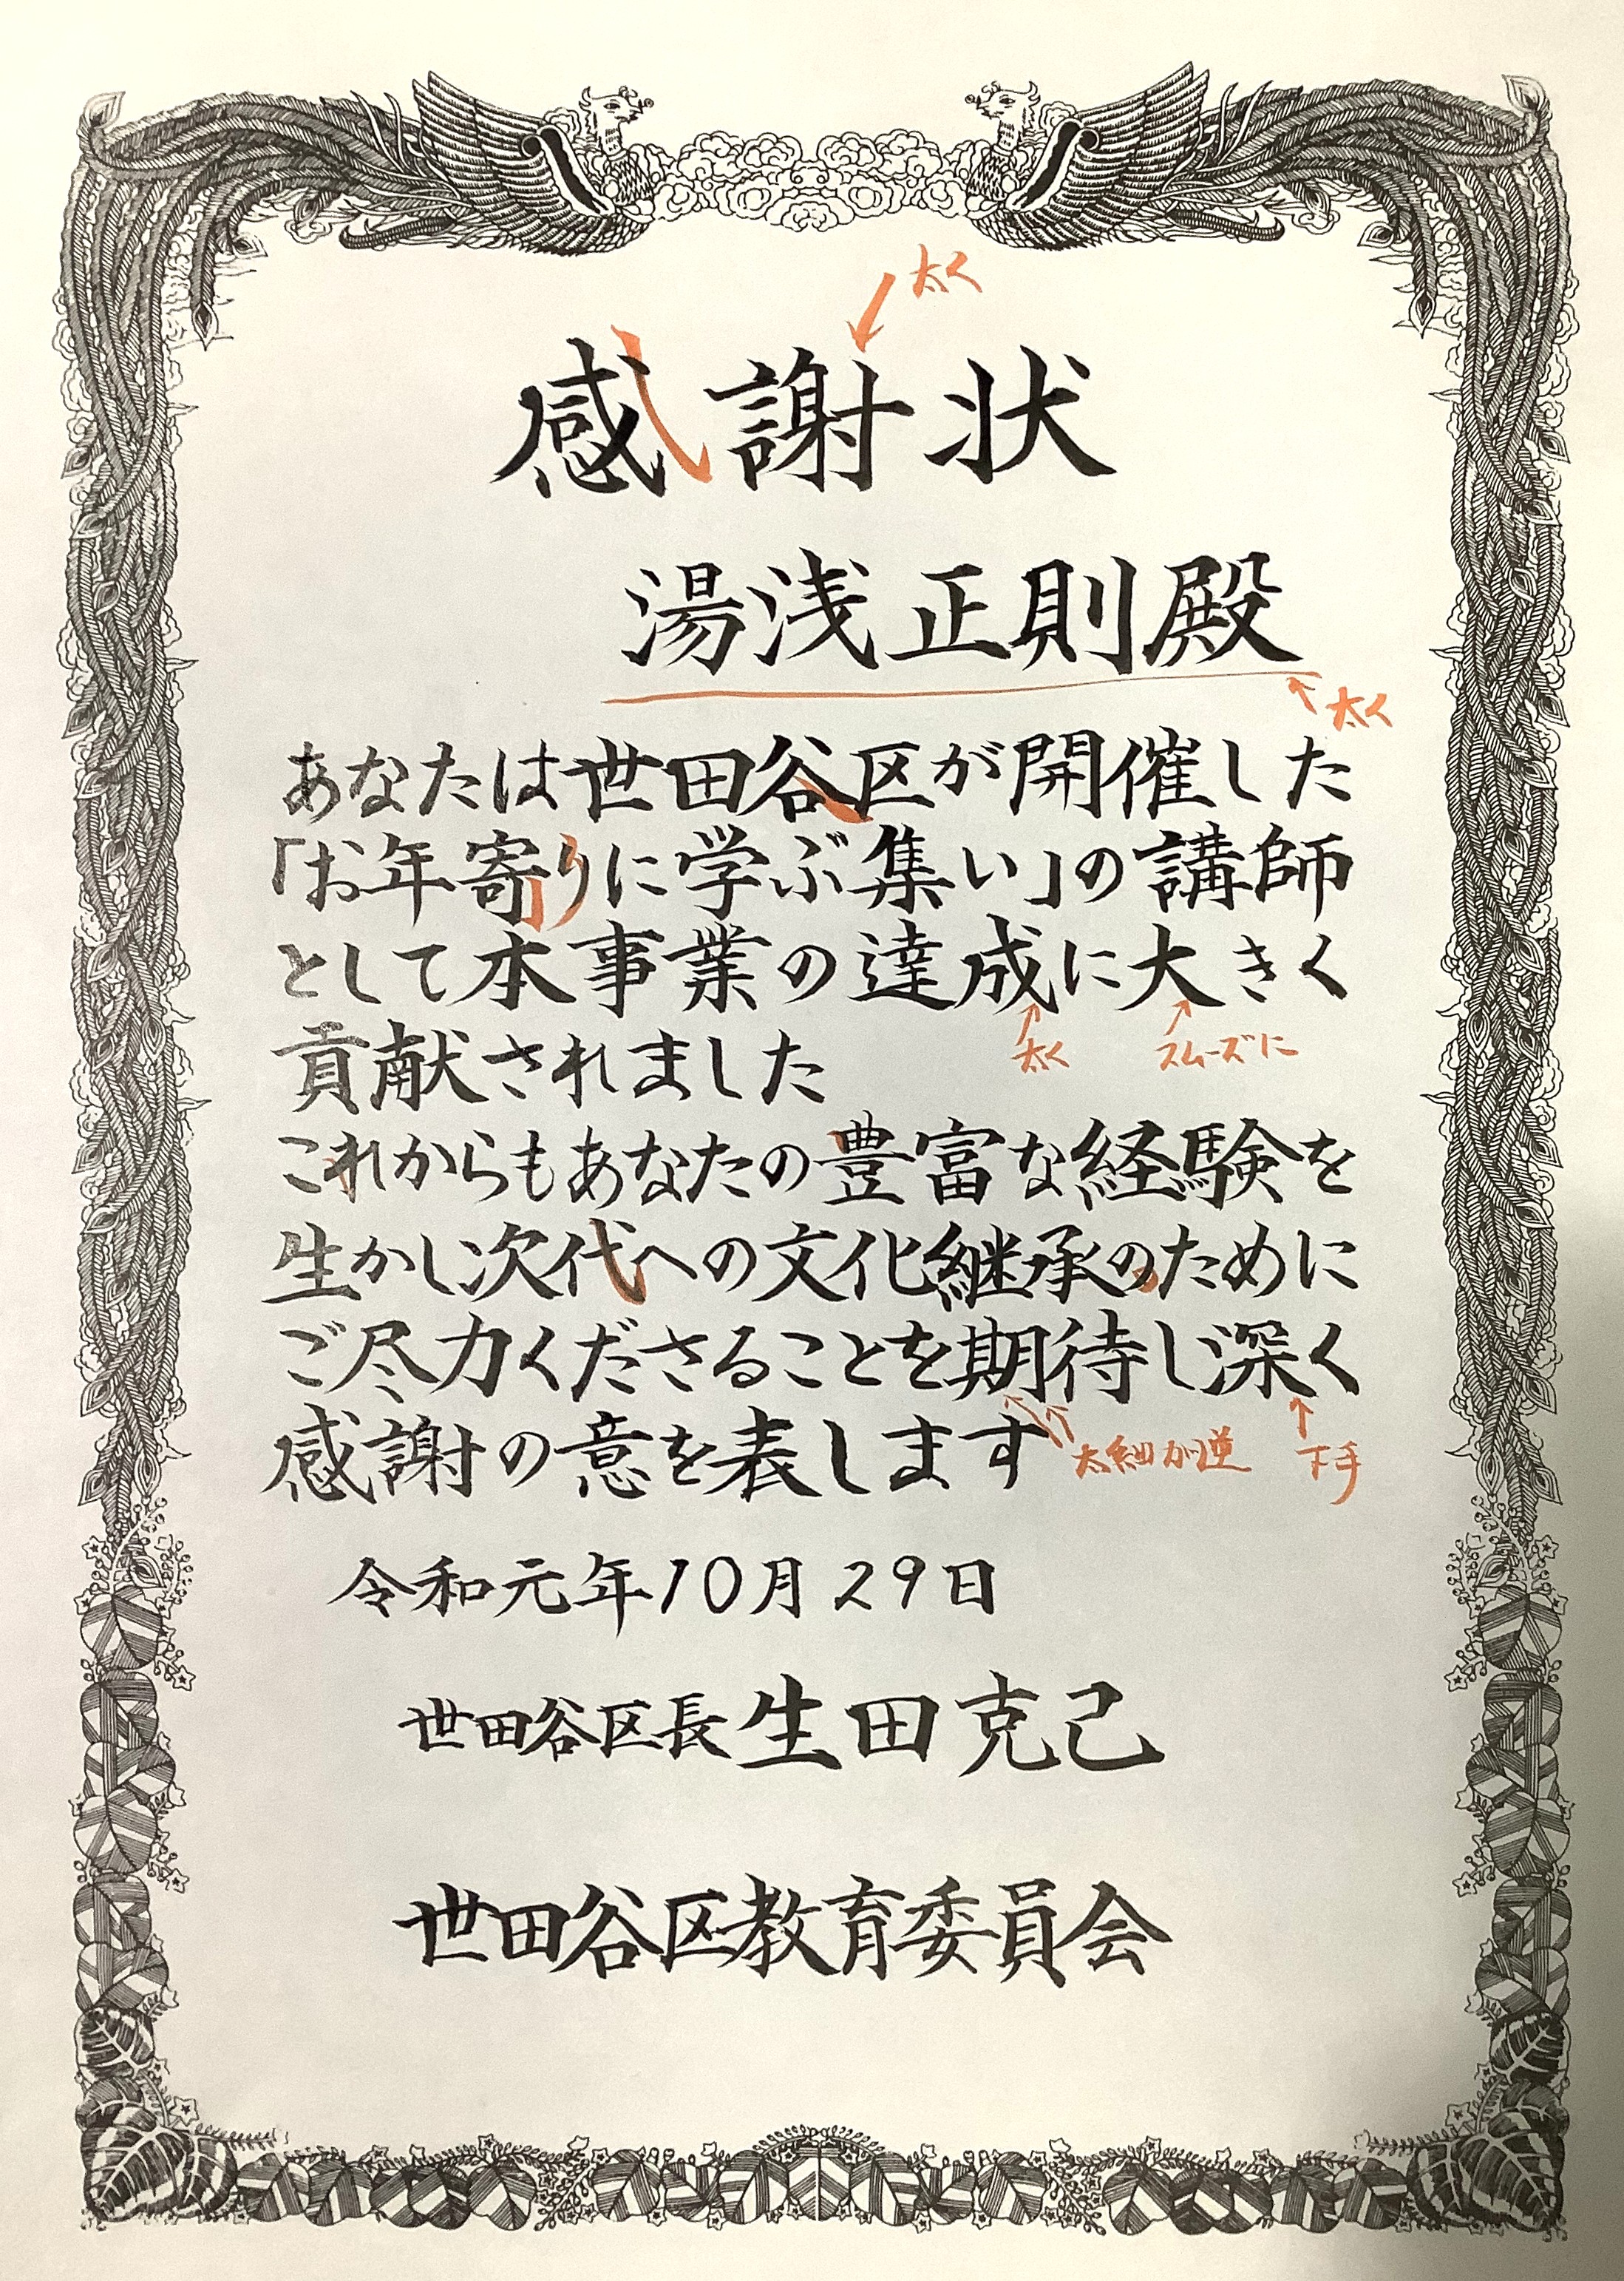 太く
感謝状
湯浅正則殿
太く
あなたは世田谷区が開催した
「お年寄りに学ぶ集い」の講師
として本事業の達成に大きく
太く
スムーズに
貢献されました
これからもあなたの豊富な経験を
生かし次代への文化継承のために
ご尽力くださることを期待し深く
太細が逆
下手
感謝の意を表します
令和元年10月29日
世田谷区長生田克己
世田谷区教育委員会